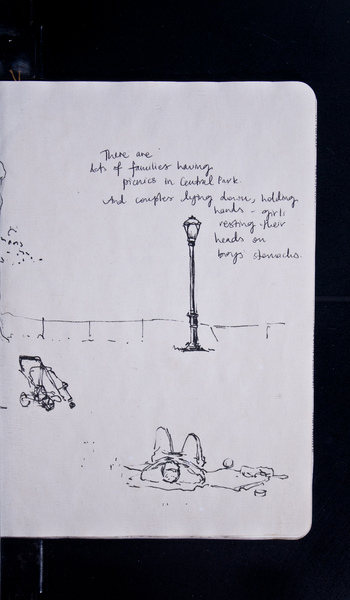 There are
lots of families having
picnics in Central Park.
And couples lying down, holding
hands - girls
resting their
heads on
boys' stomachs.